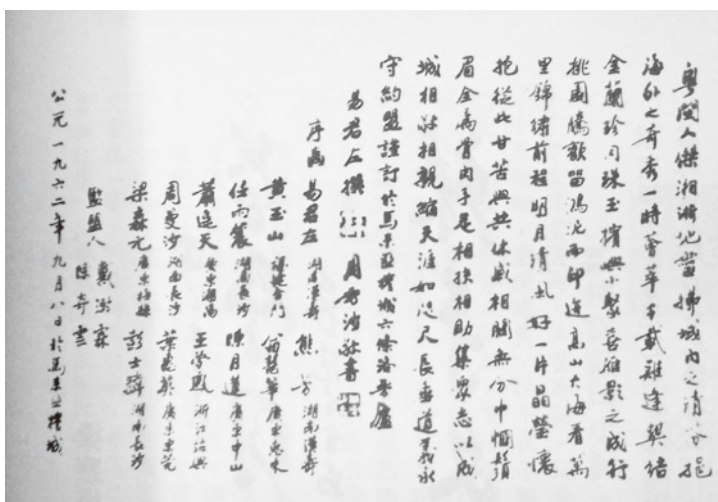 粵閩人傑湘浙地當掃城內之清分挹
海外之奇秀一時薈萃千載難逢契結
金蘭珍同珠玉檳興小聚喜雁影之成行
桃園騰歡留鴻泥而印迹高山大海看萬
里錦繡前程明月清風好一片晶瑩懷
抱從此甘苦與共休戚相關無分巾幗鬚
眉全為骨肉手足相扶相助集眾志以成
城相敬相親縮天涯如咫尺長垂道義永
守約盟謹訂於馬來亞檳城六條路老廬
易君左撰 周曼沙敬書
序齒 易君左 湖南漢壽 熊芳 湖南漢壽
黃玉山 福建金門 翁慧華 廣東惠來
任雨農 湖南長沙 陳月蓮 廣東中山
蕭遙天 廣東潮陽 王學惠 浙江紹興
周曼沙 湖南長沙 葉惠英 廣東東莞
梁森元 廣東梅縣 彭士驎 湖南長沙
監盟人 戴淑霖
陳奇雲
公元一九六二年九月八日於馬來亞檳城